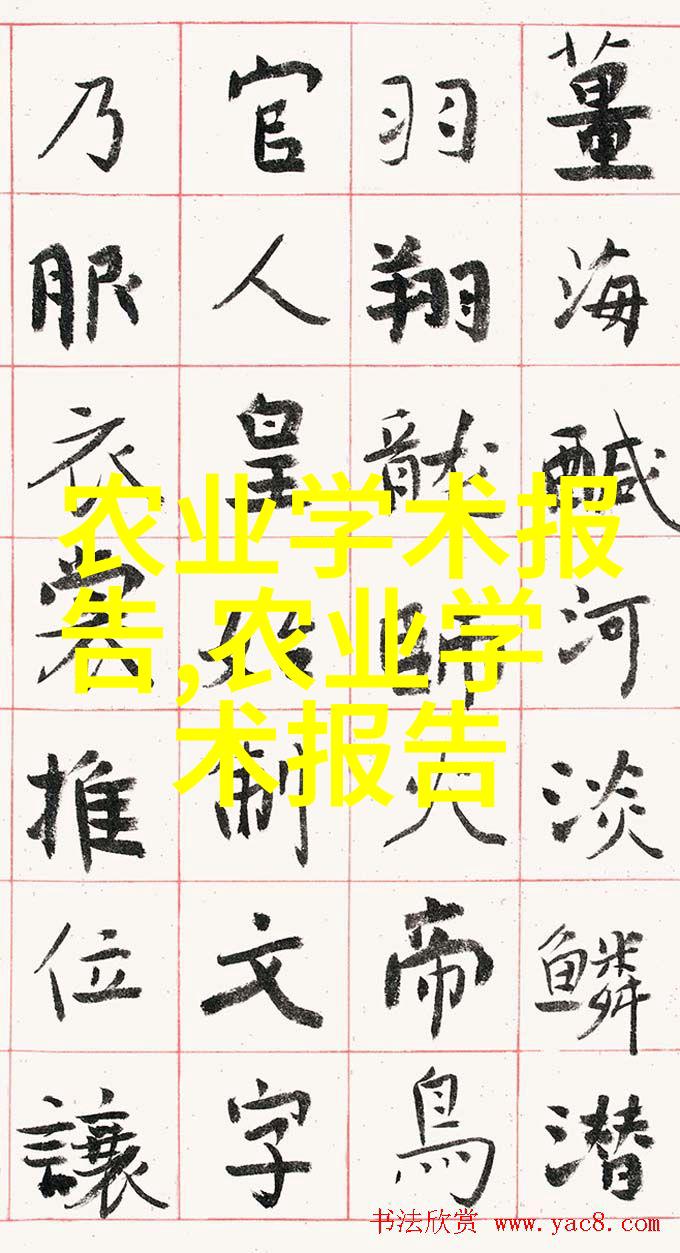 薑海鹹河淡鱗潜
羽翔龍師火帝鳥
官人皇始制文字
乃服衣裳推位讓
农业学术报
告,农业学
术报告
书法欣赏 www.yac8.com